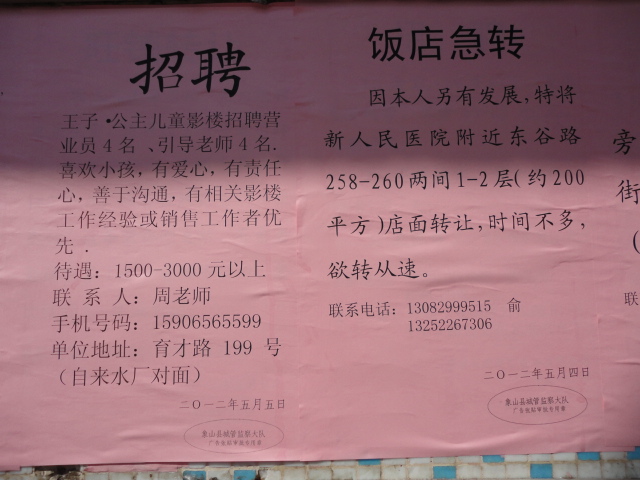 招聘
王子·公主儿童影楼招聘营
业员4名、引导老师4名.
喜欢小孩，有爱心，有责任
心，善于沟通，有相关影楼
工作经验或销售工作者优
先.
待遇：1500-3000元以上
联 系 人：周老师
手机号码：15906565599
单位地址：育才路 199 号
（自来水厂对面）
二○一二年五月五日
象山县城管监察大队
广告张贴审批专用章
饭店急转
因本人另有发展,特将
新人民医院附近东谷路
258-260两间1-2层(约200
平方)店面转让,时间不多,
欲转从速。
联系电话：13082999515 俞
13252267306
二○一二年五月四日
象山县城管监察大队
广告张贴审批专用章
旁
街
(
联